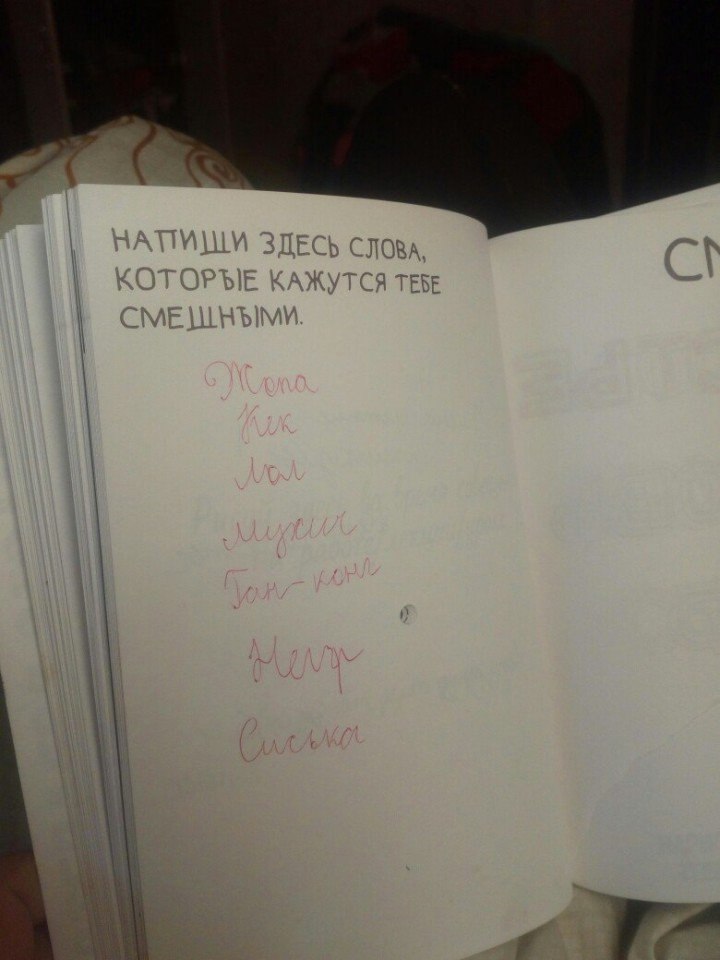 НАПИШИ ЗДЕСЬ СЛОВА,
КОТОРЫЕ КАЖУТСЯ ТЕБЕ
СМЕШНЫМИ.
Жопа
Кек
Лол
Мужич
Ган-конг
Негр
Сиська
СМ